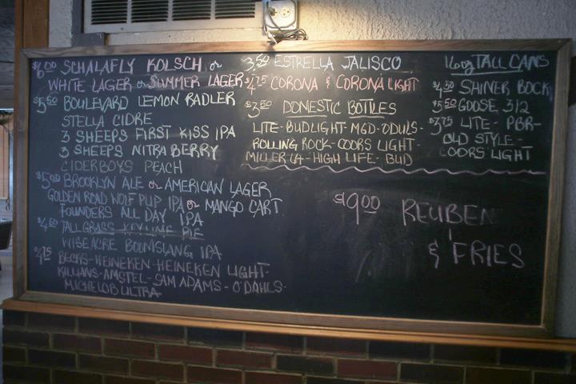 $6.00 SCHALAFLY KOLSCH or
WHITE LAGER or SUMMER LAGER
$5.50 BOULEVARD LEMON RADLER
STELLA CIDRE
3 SHEEPS FIRST KISS IPA
3 SHEEPS NITRA BERRY
CIDERBOYS PEACH
$5.00 BROOKLYN ALE or AMERICAN LAGER
GOLDEN ROAD WOLF PUP IPA or MANGO CART
FOUNDERS ALL DAY IPA
TALLGRASS KEY LIME PIE
WISEACRE BOOMSLANG IPA
BECKS-HEINEKEN-HEINEKEN LIGHT-
KILLIANS-AMSTEL-SAM ADAMS-O'DAHLS-
MICHELOB ULTRA
3.50 ESTRELLA JALISCO
CORONA & CORONA LIGHT
$3.50 DOMESTIC BOTTLES
LITE-BUDLIGHT-MGD-ODULS-
ROLLING ROCK-COORS LIGHT-
MILLER 64-HIGH LIFE-BUD
$9.00 REUBEN
& FRIES
16oz TALL CANS
SHINER BOCK
GOOSE 312
LITE-PBR-
OLD STYLE-
COORS LIGHT